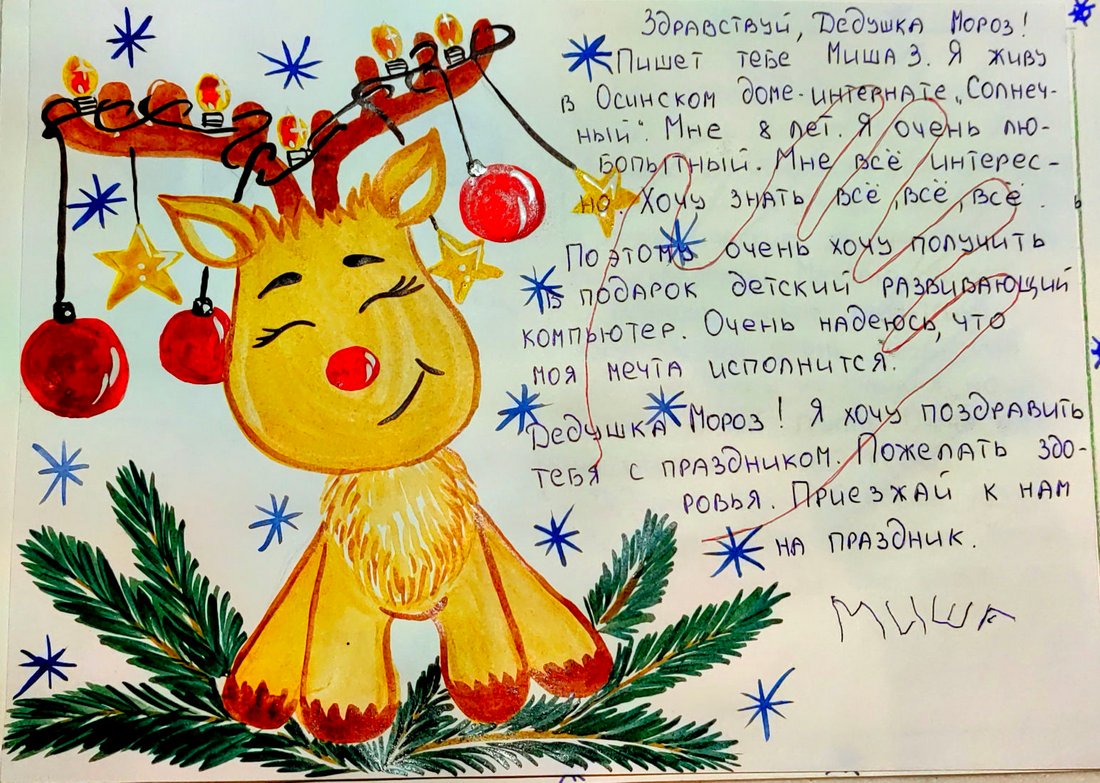 Здравствуй, Дедушка Мороз!
Пишет тебе Миша З. Я живу
в Осинском доме-интернате „Солнеч-
ный". Мне 8 лет. Я очень лю-
бопытный. Мне всё интерес-
но. Хочу знать всё, всё, всё.
Поэтому очень хочу получить
в подарок детский развивающий
компьютер. Очень надеюсь, что
моя мечта исполнится.
Дедушка Мороз! Я хочу поздравить
тебя с праздником. Пожелать здо-
ровья. Приезжай к нам
на праздник.
Миша